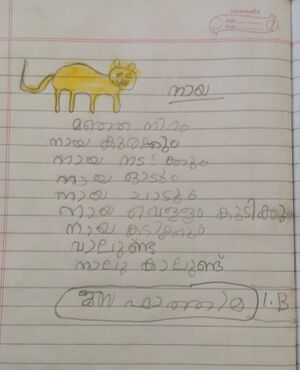 classmate
Date
Page
നായ
മഞ്ഞ നിറം
നായ കുരക്കും
നായ നടക്കും
നായ ഓടും
നായ ചാടും
നായ വെള്ളം കുടിക്കും
നായ കടിക്കും
വാലുണ്ട്
നാലു കാലുണ്ട്
ഫാത്തിമ 1.B